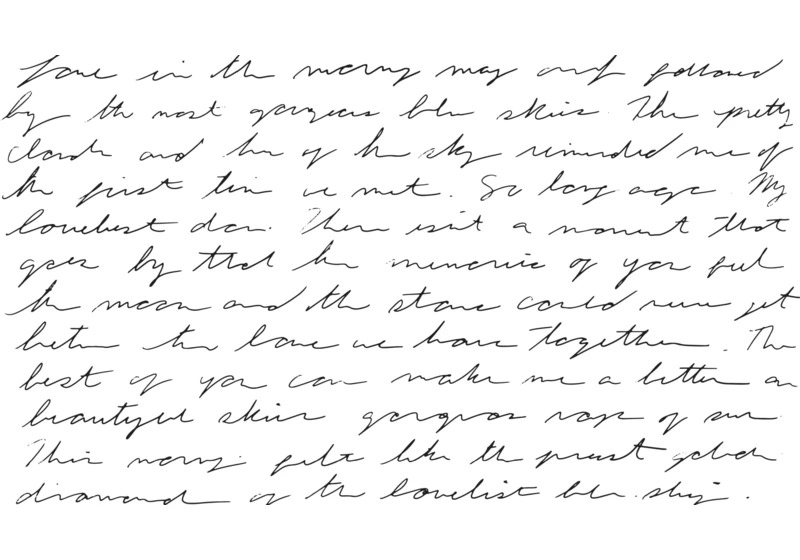 in the morning may and followed
by the most gorgeous blue skies. The pretty
clouds and hue of the sky reminded me of
the first time we met. So long ago. My
loveliest dear. There isn't a moment that
goes by that the memories of you feel
the moon and the stars could never get
between the love we have together. The
best of you can make me a better an
beautiful skies gorgeous rays of sun
This morning felt like the purest golden
diamond of the loveliest blue sky.